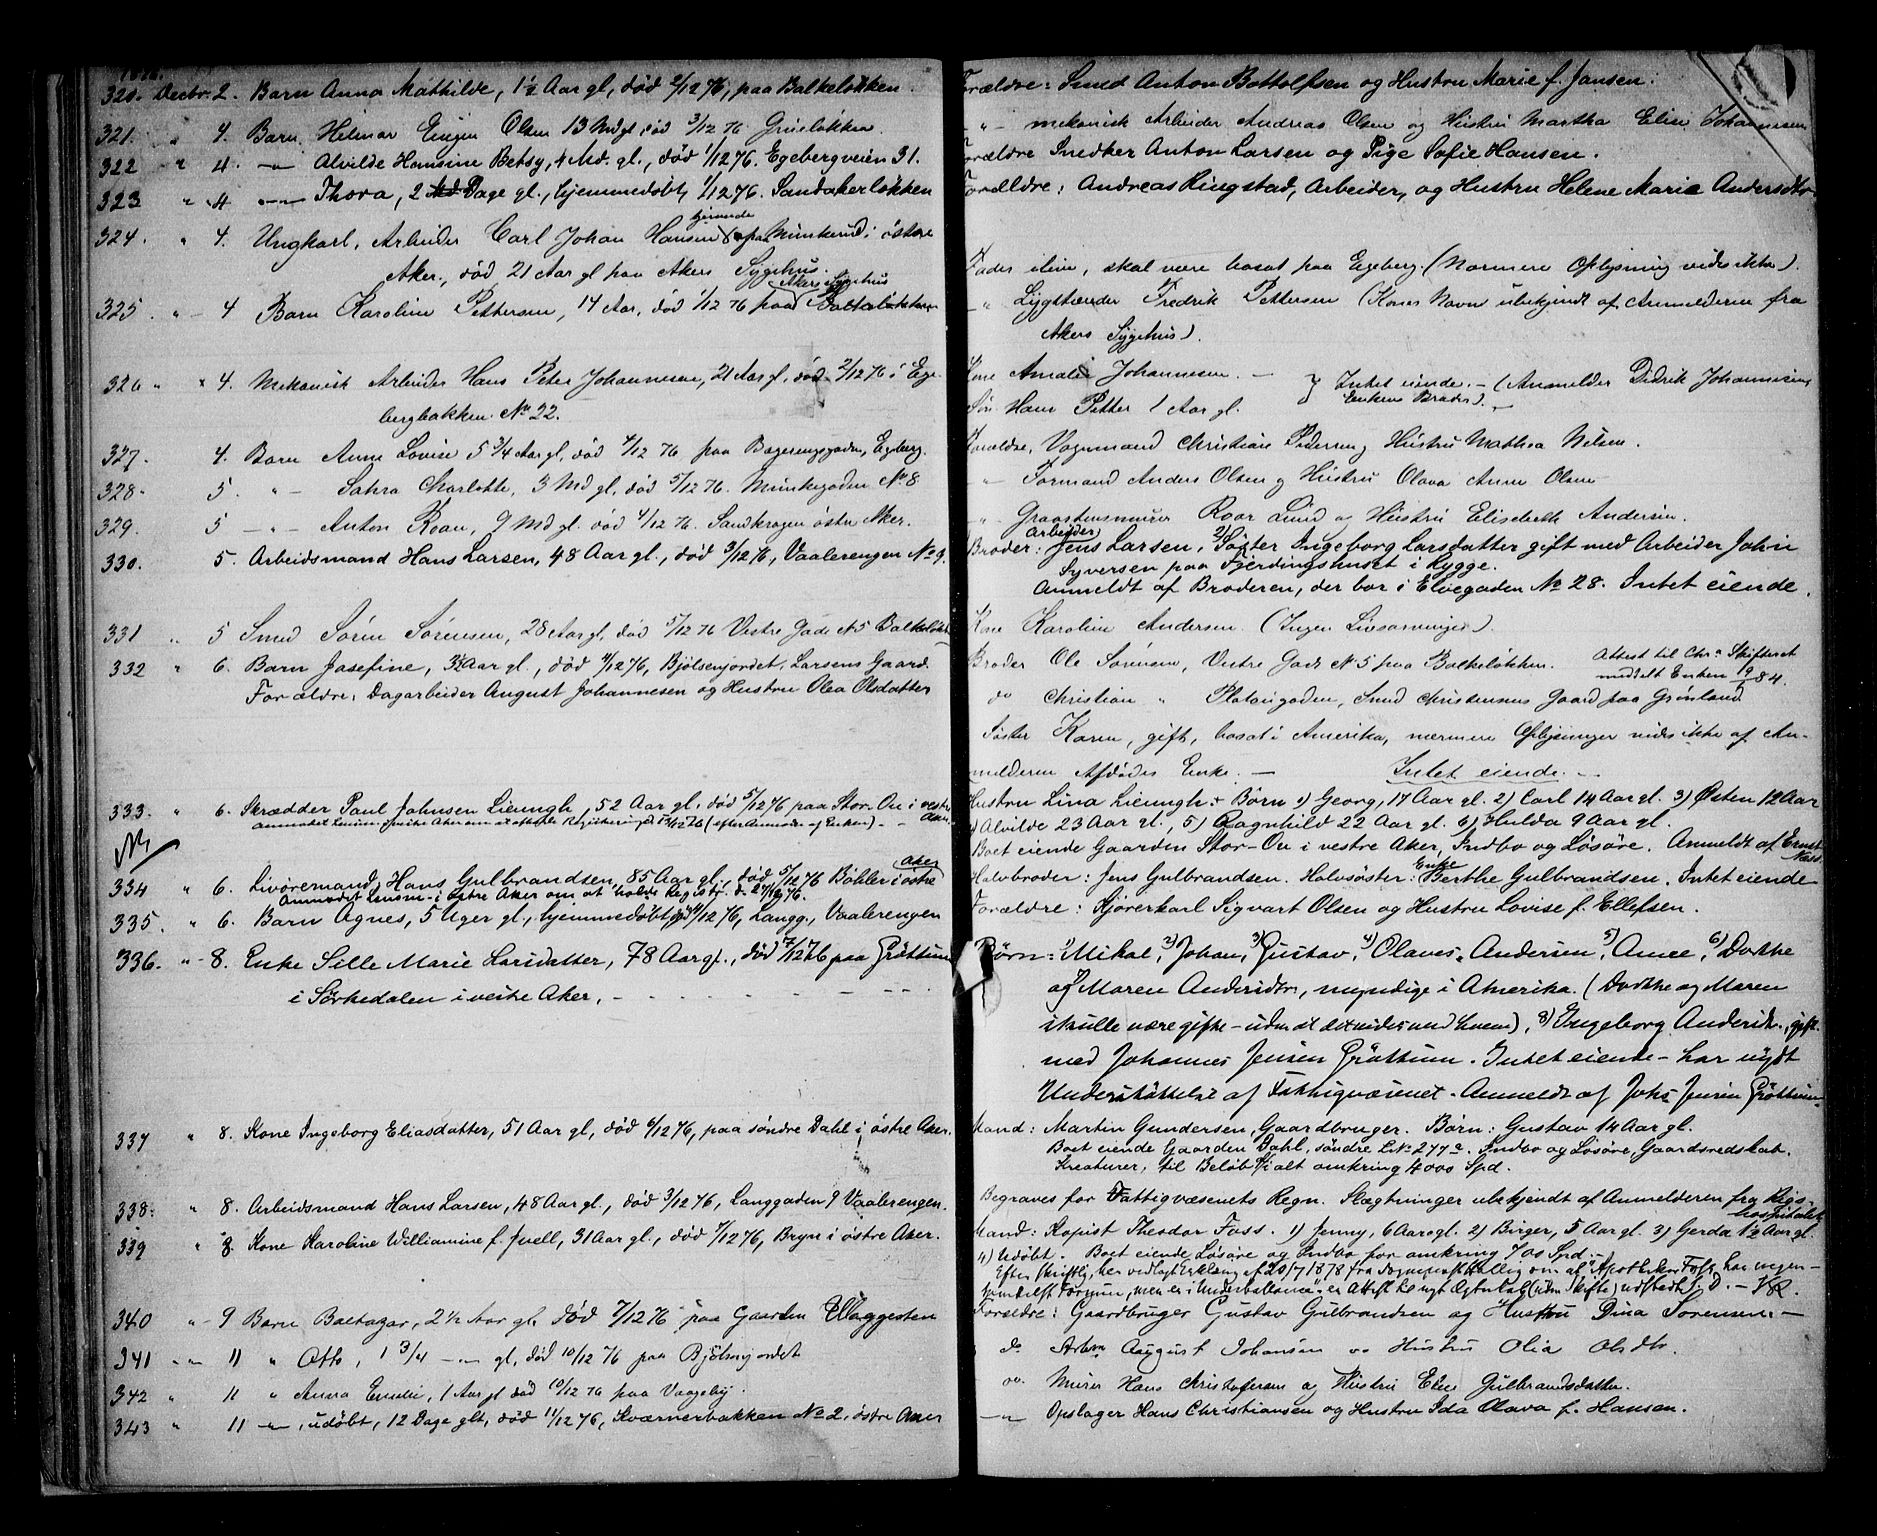 320. Decbr. 2. Barn Anna Mathilde, 1½ Aar gl, død 2/12 76, paa Balkeløkken.
321. " 4. Barn Helmar Eugen Olsen 13 Md gl, død 3/12 76 Grüsløkken.
322 " 4. —"— Alvilde Hansine Betsy, 4 Md. gl., død 1/12 76. Egebergveien 31.
323 " 4 —"— Thora, 2 Dage gl., hjemmedøbt, 1/12 76. Sandakerløkken
324. " 4. Ungkarl, Arbeider Carl Johan Hansen paa Munkerud i østre
Aker, død 21 Aar gl paa Akers Sygehus.
Akers Sygehus
325 . " — 4 Barn Karoline Pettersen, 14 Aar, død 1/12 76 paa
326 " 4. Mekanisk Arbeider Hans Peter Johannesen, 21 Aar gl., død 2/12 76 i Ege-
bergbakken No 22.
327. 4. Barn Anna Lovise 5 3/4 Aar gl, død 4/12 76 paa Egeberg.
328. 5. " — Sahra Charlotte, 3 Md gl, død 5/12 76. Munkegaden No 8
329. 5 —"— Anton Roar, 9 Md gl. død 4/12 76. Sandkrogen østre Aker.
330. 5. Arbeidsmand Hans Larsen, 48 Aar gl., død 3/12 76, Vaalerengen No 9.
331 " 5 Smed Søren Sørensen, 28 Aar gl, død 5/12 76 Vestre Gade No 5 Balkeløkken
332 " 6. Barn Josefine, 3½ Aar gl., død 4/12 76, Bjølsenjordet, Larsens Gaard.
Forældre: Dagarbeider August Johannesen og Hustru Olea Olsdatter
333. " 6. Skrædder Paul Johnsen Lieungh, 52 Aar gl, død 5/12 76 paa Stor-Ou i vestre
Aker.
334 " 6. Livøremand Hans Gulbrandsen, 85 Aar gl., død 5/12 76 Bøhler i østre
Aker
335. " 6. Barn Agnes, 5 Uger gl., hjemmedøbt, 4/12 76, Langg., Vaalerengen
336. " — 8. Enke Sille Marie Larsdatter, 78 Aar gl., død 7/12 76 paa Grøttum
i Sørkedalen i vestre Aker,
337 " 8. Kone Ingeborg Eliasdatter, 51 Aar gl, død 6/12 76, paa søndre Dahl i østre Aker.
338. " 8. Arbeidsmand Hans Larsen, 48 Aar gl., død 3/12 76, Langgaden 9 Vaalerengen.
339 " 8. Kone Karoline Williamine f. Juell, 31 Aar gl., død 7/12 76, Bryn i østre Aker.
340 " — 9 Barn Baltazar, 2½ Aar gl død 7/12 76 paa Gaarden Waggesten
341 — " — 11 " Otto, 1 3/4 —"— gl, død 10/12 76 paa Bjølsenjordet
342 " 11 " Anna Emilie, 1 Aar gl død 10/12 76 paa Vaageby.
343 " 11 —"—, udøbt, 12 Dage glt, død 11/12 76, Kværnerbakken No 2, østre Aker
Forældre: Smed Anton Bottolfsen og Hustru Marie f. Jansen.
—"— mekanisk Arbeider Andreas Olsen og Hustru Martha Elise Johannesen
Forældre Snedker Anton Larsen og Pige Sofie Hansen.
Forældre: Andreas Ringstad, Arbeider, og Hustru Helene Marie Andersdtr.
Fader ilive, skal være bosat paa Egeberg. (Nærmere Oplysning vides ikke).
—"— Lygttænder Fredrik Pettersen (Konens Navn ubekjendt af Anmelderen fra
Akers Sygehus).
Kone Amalie Johannesen. — } Intet eiende. — (Anmelder Didrik Johannesen,
Søn Hans Petter 1 Aar gl. Enkens Broder).
Forældre, Vognmand Christian Pedersen og Hustru Mathea Nilsen.
—"— Formand Anders Olsen og Hustru Olava Anne Olsen
—"— Graastensmurer Roar Lund og Hustru Elisabeth Andersen.
Arbeider
Broder: Jens Larsen, 2) Søster Ingeborg Larsdatter gift med Arbeider Johan
Syversen paa Fjerdingshuset i Rygge.
Anmeldt af Broderen, der bor i Elvegaden No 28. Intet eiende.
Kone Karoline Andersen. (Ingen Livsarvinger).
Broder Ole Sørensen, Vestre Gade No 5 paa Balkeløkken. Attest til Chr.a Skifteret
meddelt Enken 19/ 84.
do Christian " Platougaden, Smed Christensens Gaard paa Grønland
Søster Karen, gift, bosat i Amerika, nærmere Oplysninger vides ikke af An-
melderen Afdødes Enke. — Intet eiende. —
Hustru Lina Lieungh. Børn 1) Georg, 17 Aar gl. 2) Carl 14 Aar gl. 3) Østen 12 Aar
4) Alvilde 23 Aar gl., 5) Ragnhild 22 Aar gl. 6) Hulda 9 Aar gl.
Boet eiende Gaarden Stor-Ou i vestre Aker, Indbo og Løsøre. Anmeldt af Ernst
Halvbroder: Jens Gulbrandsen. Halvsøster: Enke Berthe Gulbrandsen. Intet eiende
Forældre: Kjørerkarl Sigvart Olsen og Hustru Lovise f. Ellefsen.
Børn: 1) Mikal, 2) Johan, 3) Gustav, 4) Olaves Andersen, 5) Anne, 6) Dorthe
og Maren Andersdtr, myndige i Amerika. (Dorthe og Maren
skulle være gifte — uden at det vides med hvem), 8) Ingeborg Andersdtr., gift
med Johannes Jensen Grøttum. Intet eiende — har nydt
Understøttelse af Fattigvæsenet. Anmeldt af Johs Jensen Grøttum
Mand: Martin Gundersen, Gaardbruger. Børn: Gustav 14 Aar gl.
Boet eiende Gaarden Dahl, søndre L No 277a. Indbo og Løsøre, Gaardsredskab,
Kreaturer, til Beløb i alt omkring 4000 Spd.
Begraves for Fattigvæsenets Regn. Slægtninger ubekjendt af Anmelderen fra Rigs-
hospitalet
Mand: Kopist Theodor Foss. 1) Jenny, 6 Aar gl. 2) Birger, 5 Aar gl. 3) Gerda 1½ Aar gl.
4) Udøbt. Boet eiende Løsøre og Indbo for omkring 700 Spd. —
Forældre: Gaardbruger Gustav Gulbrandsen og Hustru Dina Sorensen. —
do Arbm August Johansen og Hustru Olia Olsdtr.
do. Murer Hans Christofersen og Hustru Eline Gulbrandsdatter.
—"— Opslager Hans Christiansen og Hustru Ida Olava f. Hansen.